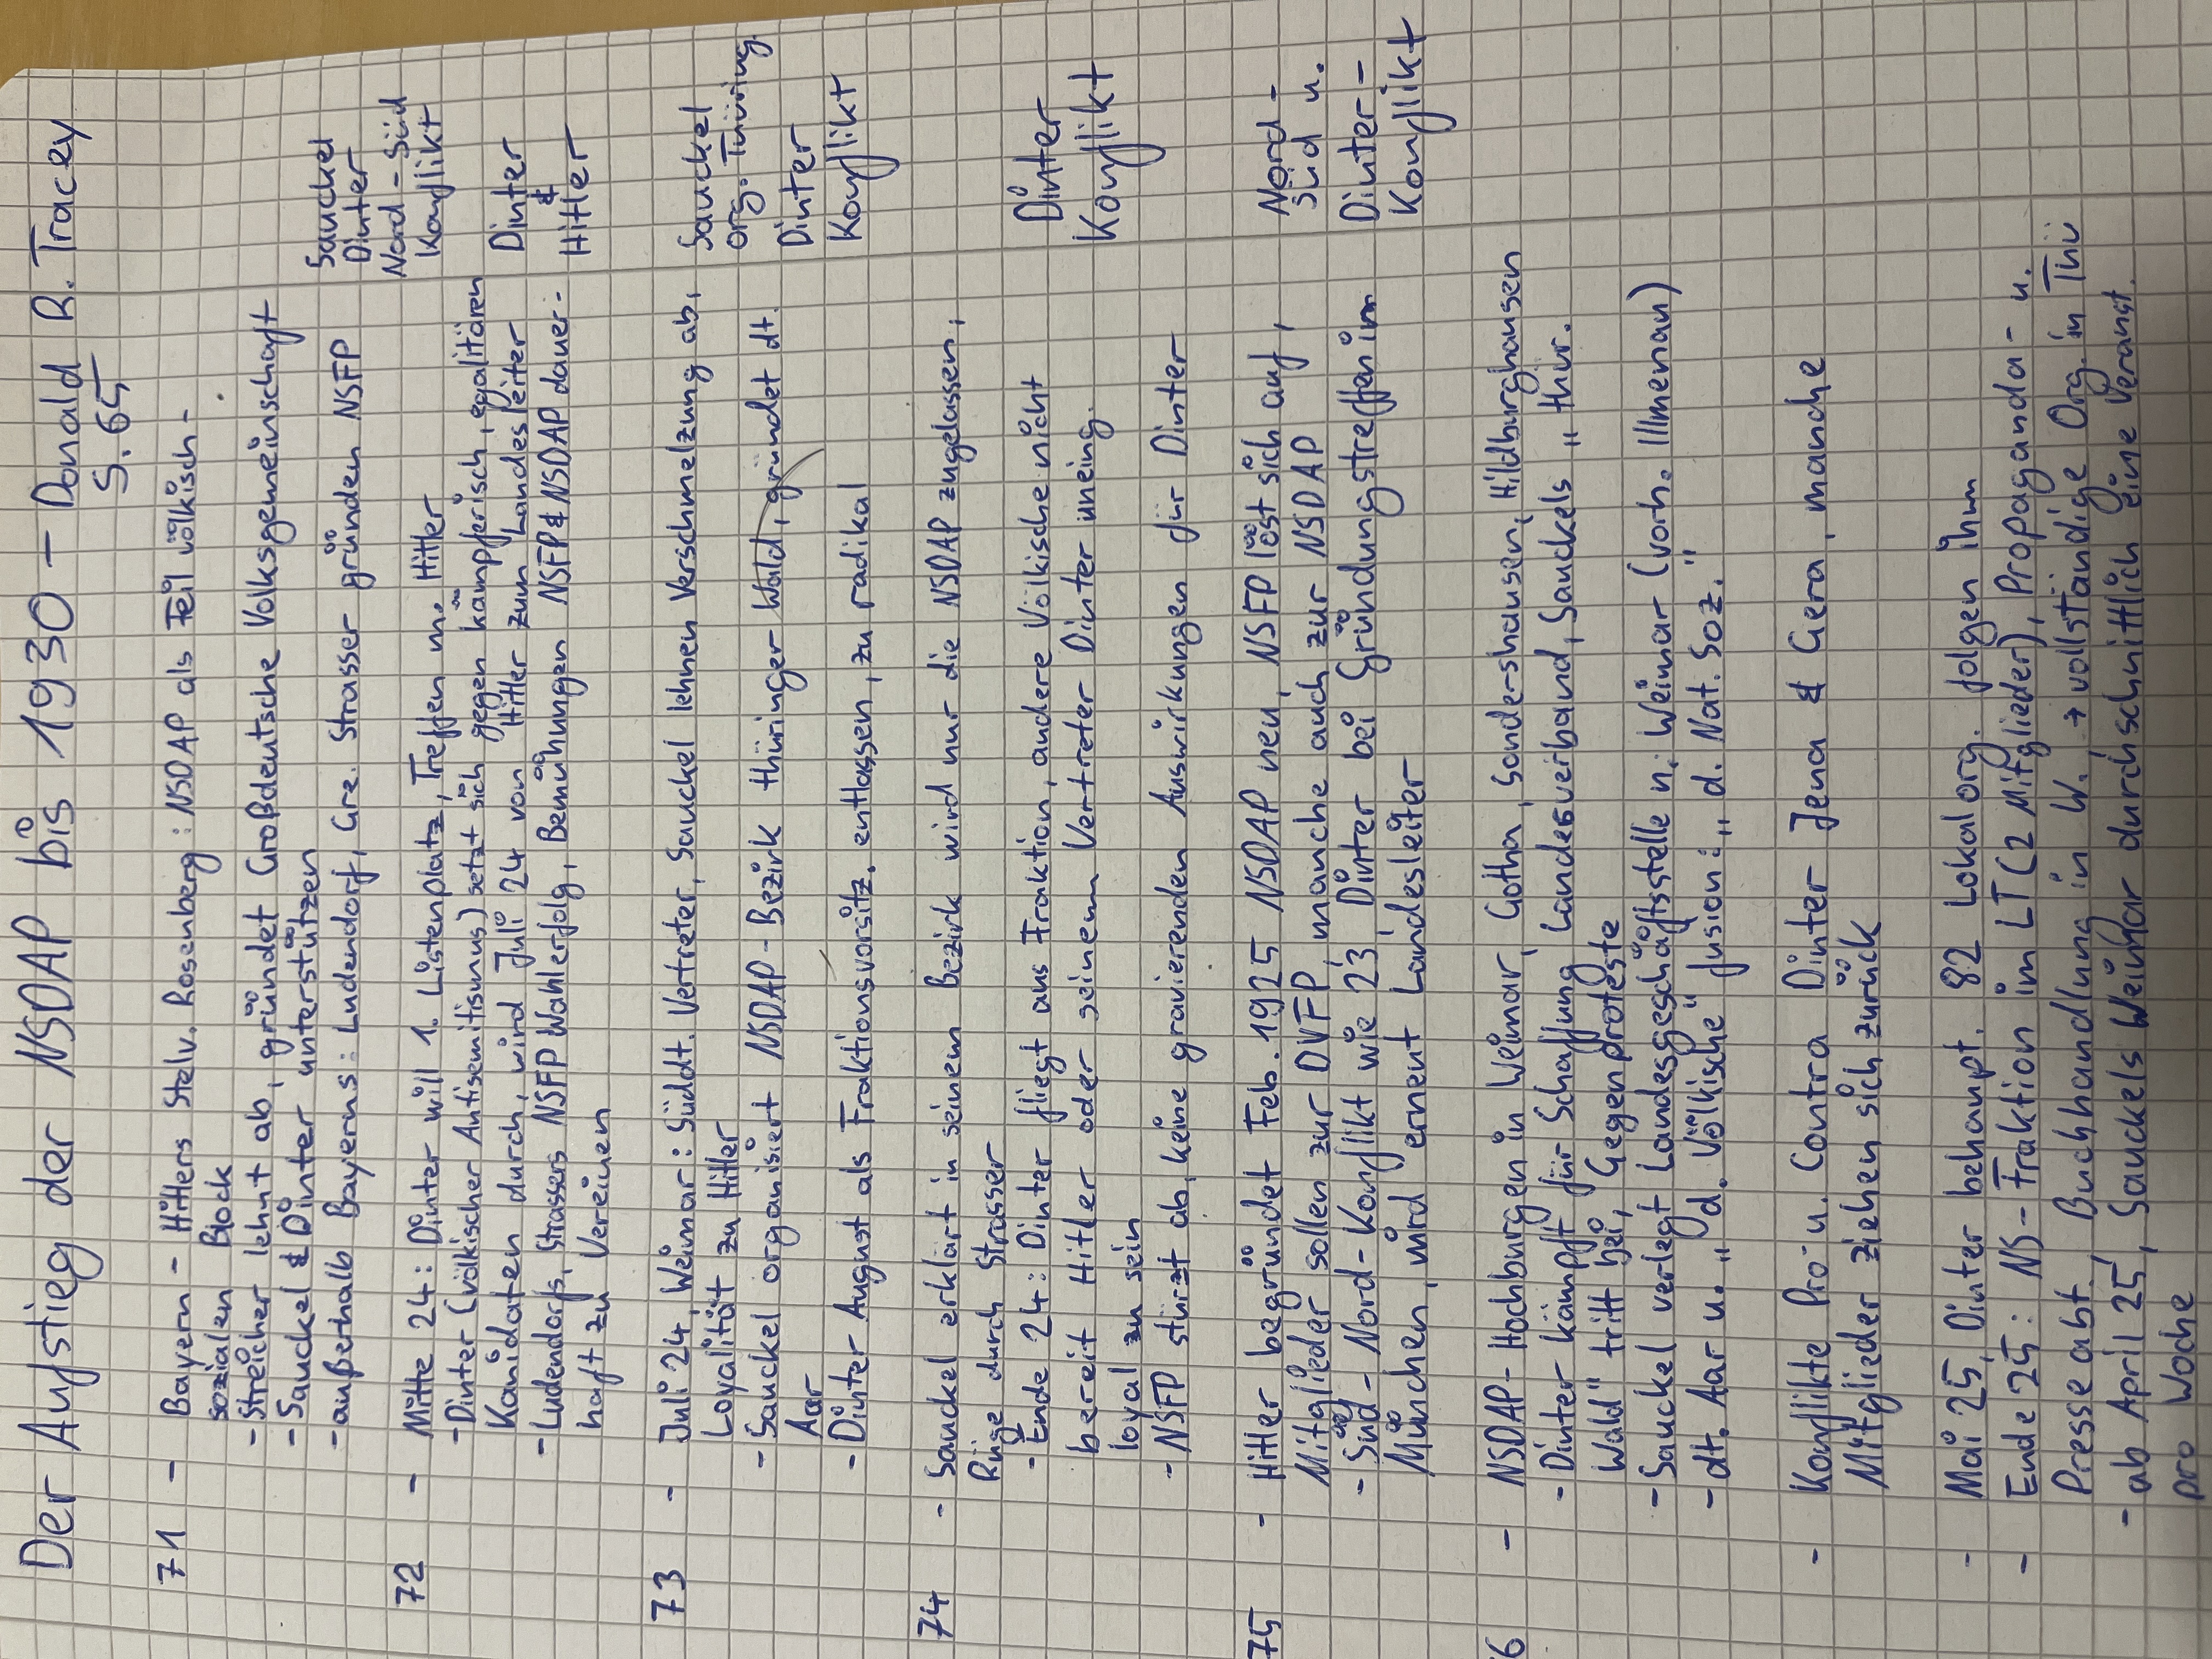 Der Aufstieg der NSDAP bis 1930 - Donald R. Tracey
S. 65
71 - Bayern - Hitlers Stelv. Rosenberg: NSDAP als Teil völkisch-
sozialen Block
- Streicher lehnt ab, gründet Großdeutsche Volksgemeinschaft
- Sauckel & Dinter unterstützen
- außerhalb Bayerns: Ludendorf, Gre. Strasser gründen NSFP
Sauckel
Dinter
Nord-Süd
Konflikt
72 - Mitte 24: Dinter will 1. Listenplatz, Treffen m. Hitler
- Dinter (völkischer Antisemitismus) setzt sich gegen kämpferisch, egalitären
Kanidaten durch, wird Juli 24 von Hitler zum Landesleiter
- Ludendorfs, Strassers NSFP Wahlerfolg, Bemühungen NSFP & NSDAP dauer-
haft zu Vereinen
Dinter
&
Hitler
73 - Juli 24, Weimar: Süddt. Vertreter, Sauckel lehnen Verschmelzung ab,
Loyalität zu Hitler
- Sauckel organisiert NSDAP-Bezirk thüringer-Wald, gründet dt.
Aar
- Dinter August als Fraktionsvorsitz. entlassen, zu radikal
Sauckel
org. Thüring.
Dinter
Konflikt
74 - Sauckel erklärt in seinem Bezirk wird nur die NSDAP zugelassen,
Rüge durch Strasser
- Ende 24: Dinter fliegt aus Fraktion, andere Völkische nicht
bereit Hitler oder seinem Vertreter Dinter uneing.
loyal zu sein
- NSFP stürzt ab, keine gravierenden Auswirkungen für Dinter
Dinter
Konflikt
75 - Hitler begründet Feb. 1925 NSDAP neu, NSFP löst sich auf,
Mitglieder sollen zur DVFP, manche auch zur NSDAP
- Süd-Nord-Konflikt wie 23, Dinter bei Gründungstreffen im
München, wird ernent Landesleiter
Nord-
Süd u.
Dinter-
Konflikt
76 - NSDAP-Hochburgen in Weimar, Gotha, Sondershausen, Hildburghausen
- Dinter kämpft für Schaffung Landesverband, Sauckels "thür.
Wald" tritt bei, Gegenproteste
- Sauckel verlegt Landesgeschäftsstelle n. Weimar (vorh. Illmenau)
- dt. Aar u. "d. Völkische" fusion: "d. Nat. Soz."
- Konflikte Pro u. Contra Dinter Jena & Gera, manche
Mitglieder ziehen sich zurück
- Mai 25, Dinter behaupt. 82 Lokalorg. folgen ihm
- Ende 25: NS-Fraktion im LT (2 Mitglieder), Propaganda- u.
Presseabt. Buchhandlung in W. → vollständige Org. in Thü
- ab April 25, Sauckels Weimar durchschnittlich eine Veranst.
pro Woche